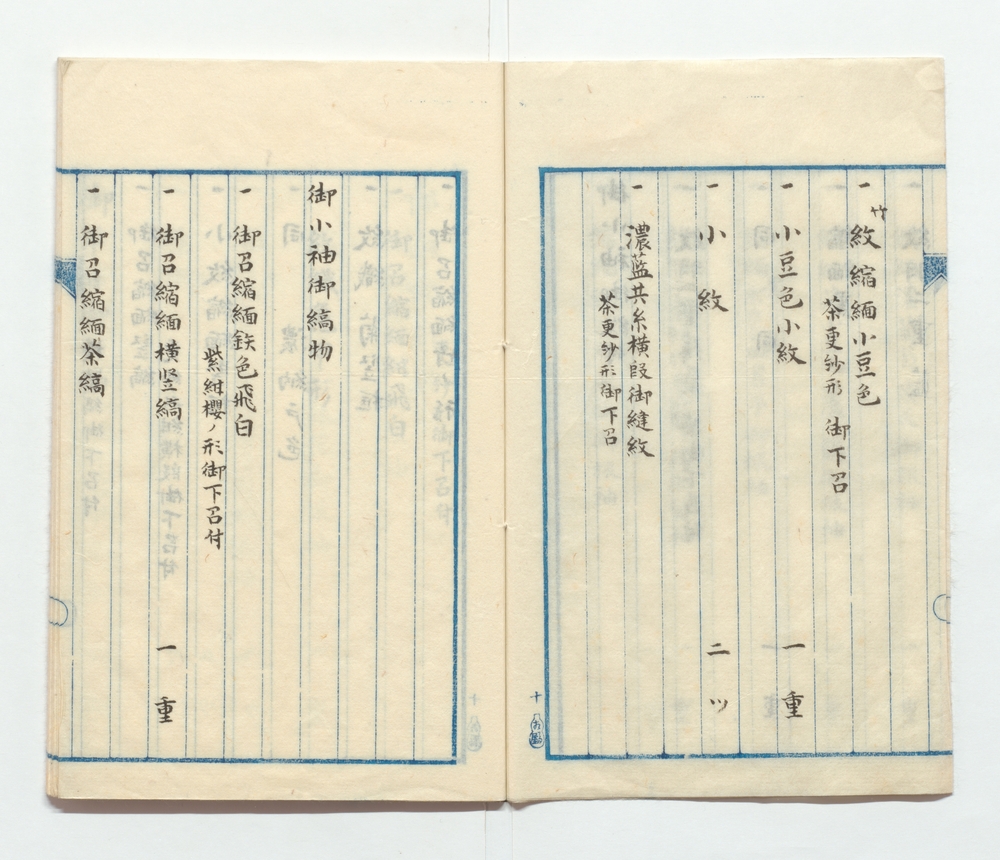 一 竹紋縮緬小豆色
茶更紗形 御下召
一 小豆色小紋 一重
一 小紋 二ツ
一 濃藍共糸横段御縫紋
茶更紗形御下召
十
御小袖御縞物
一 御召縮緬鉄色飛白
紫紺櫻ノ形御下召付
一 御召縮緬横竪縞 一重
一 御召縮緬茶縞